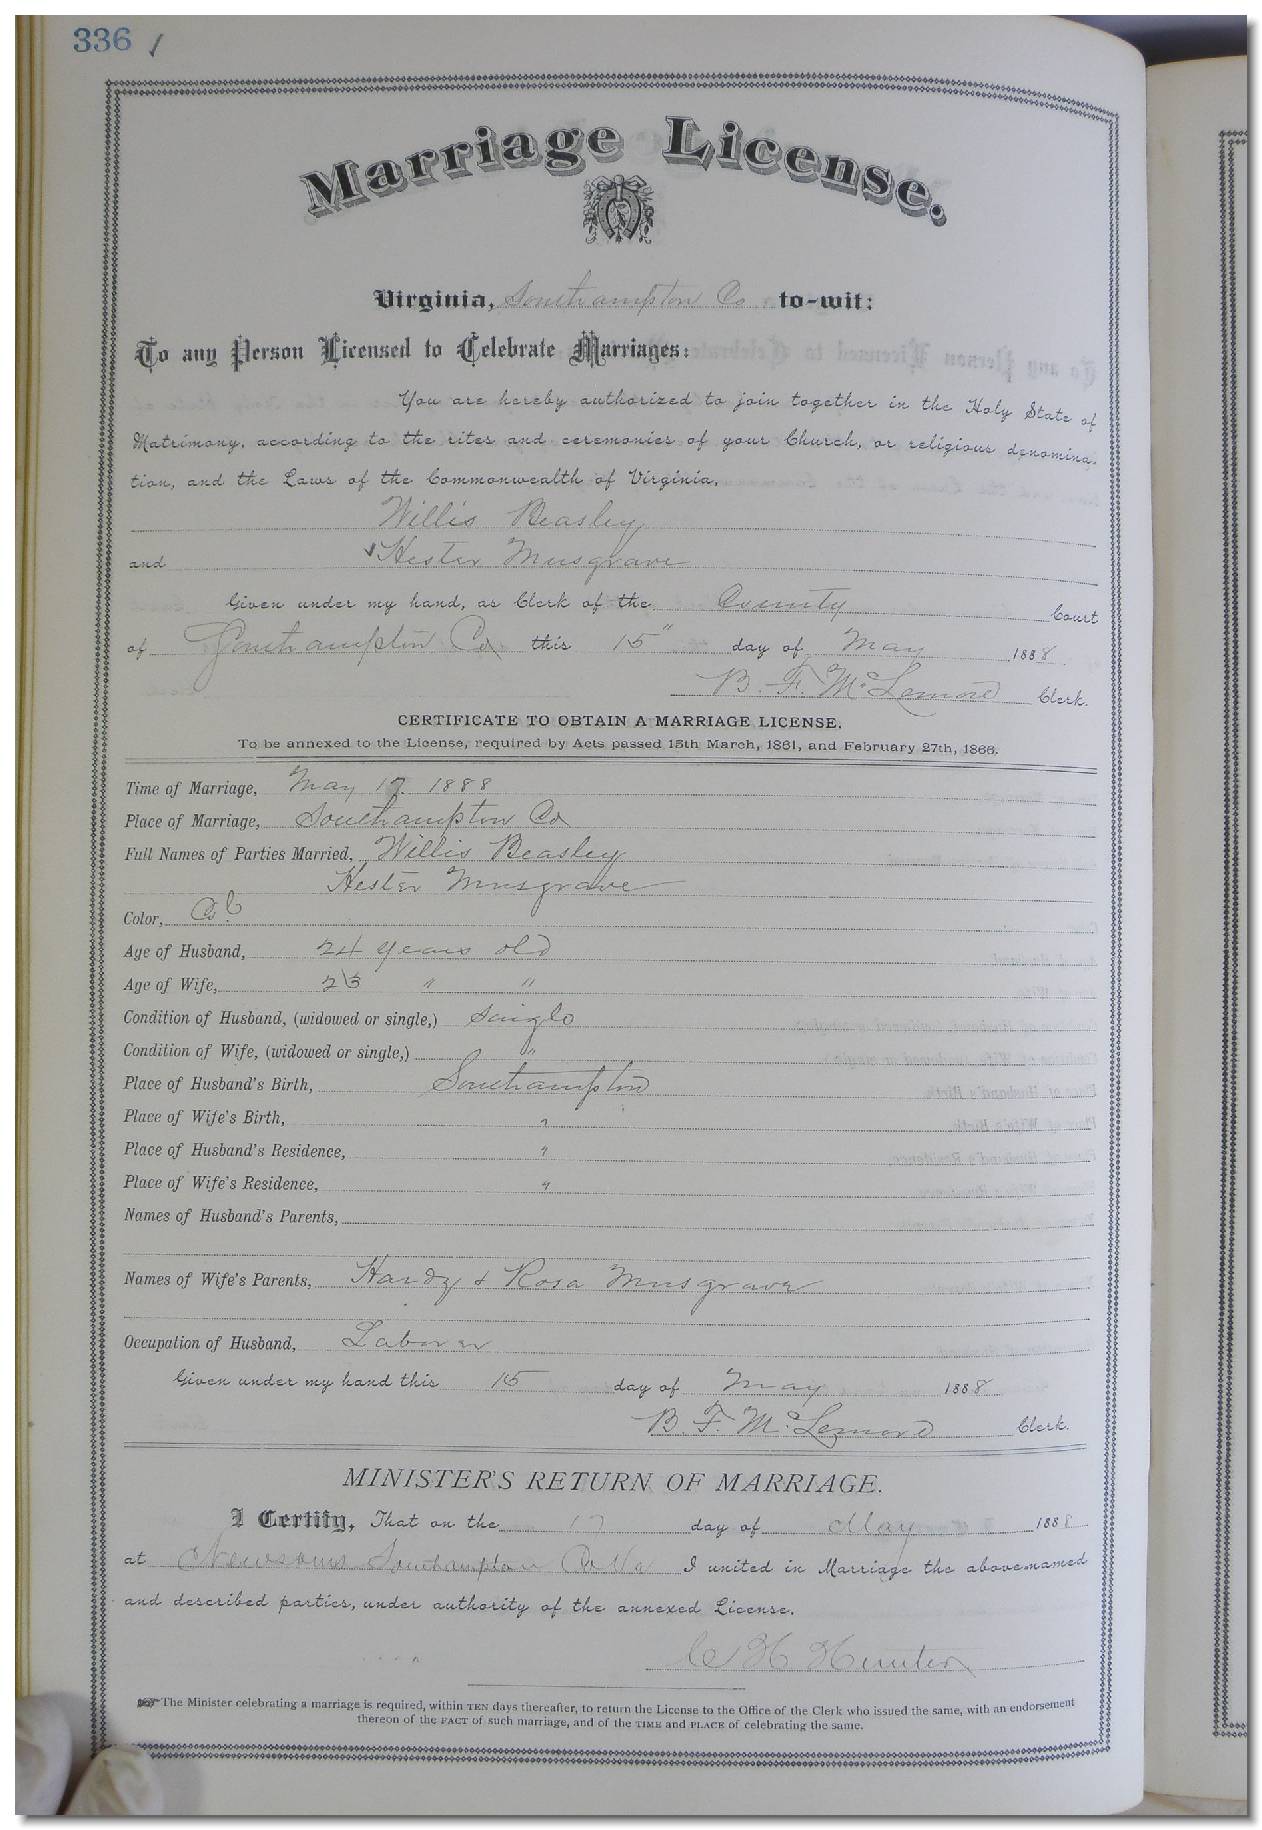 336
Marriage License.
Virginia, Southampton Co to-wit:
To any Person Licensed to Celebrate Marriages:
You are hereby authorized to join together in the Holy State of
Matrimony, according to the rites and ceremonies of your Church, or religious denomina-
tion, and the Laws of the Commonwealth of Virginia,
Willis Beasley
and Hester Musgrave
Given under my hand, as Clerk of the County Court
of Southampton Co this 15" day of May 1888
B. F. McLemore Clerk.
CERTIFICATE TO OBTAIN A MARRIAGE LICENSE.
To be annexed to the License, required by Acts passed 15th March, 1861, and February 27th, 1866.
Time of Marriage, May 17 1888
Place of Marriage, Southampton Co
Full Names of Parties Married, Willis Beasley
Hester Musgrave
Color, Col
Age of Husband, 24 years old
Age of Wife, 23 " "
Condition of Husband, (widowed or single,) Single
Condition of Wife, (widowed or single,) "
Place of Husband's Birth, Southampton
Place of Wife's Birth, "
Place of Husband's Residence, "
Place of Wife's Residence, "
Names of Husband's Parents,
Names of Wife's Parents, Hardy & Rosa Musgrave
Occupation of Husband, Laborer
Given under my hand this 15 day of May 1888
B. F. McLemore Clerk.
MINISTER'S RETURN OF MARRIAGE.
I Certify, That on the 17 day of May 1888
at Newsoms Southampton Co Va I united in Marriage the above-named
and described parties, under authority of the annexed License.
C H Hunter
The Minister celebrating a marriage is required, within TEN days thereafter, to return the License to the Office of the Clerk who issued the same, with an endorsement
thereon of the FACT of such marriage, and of the TIME and PLACE of celebrating the same.